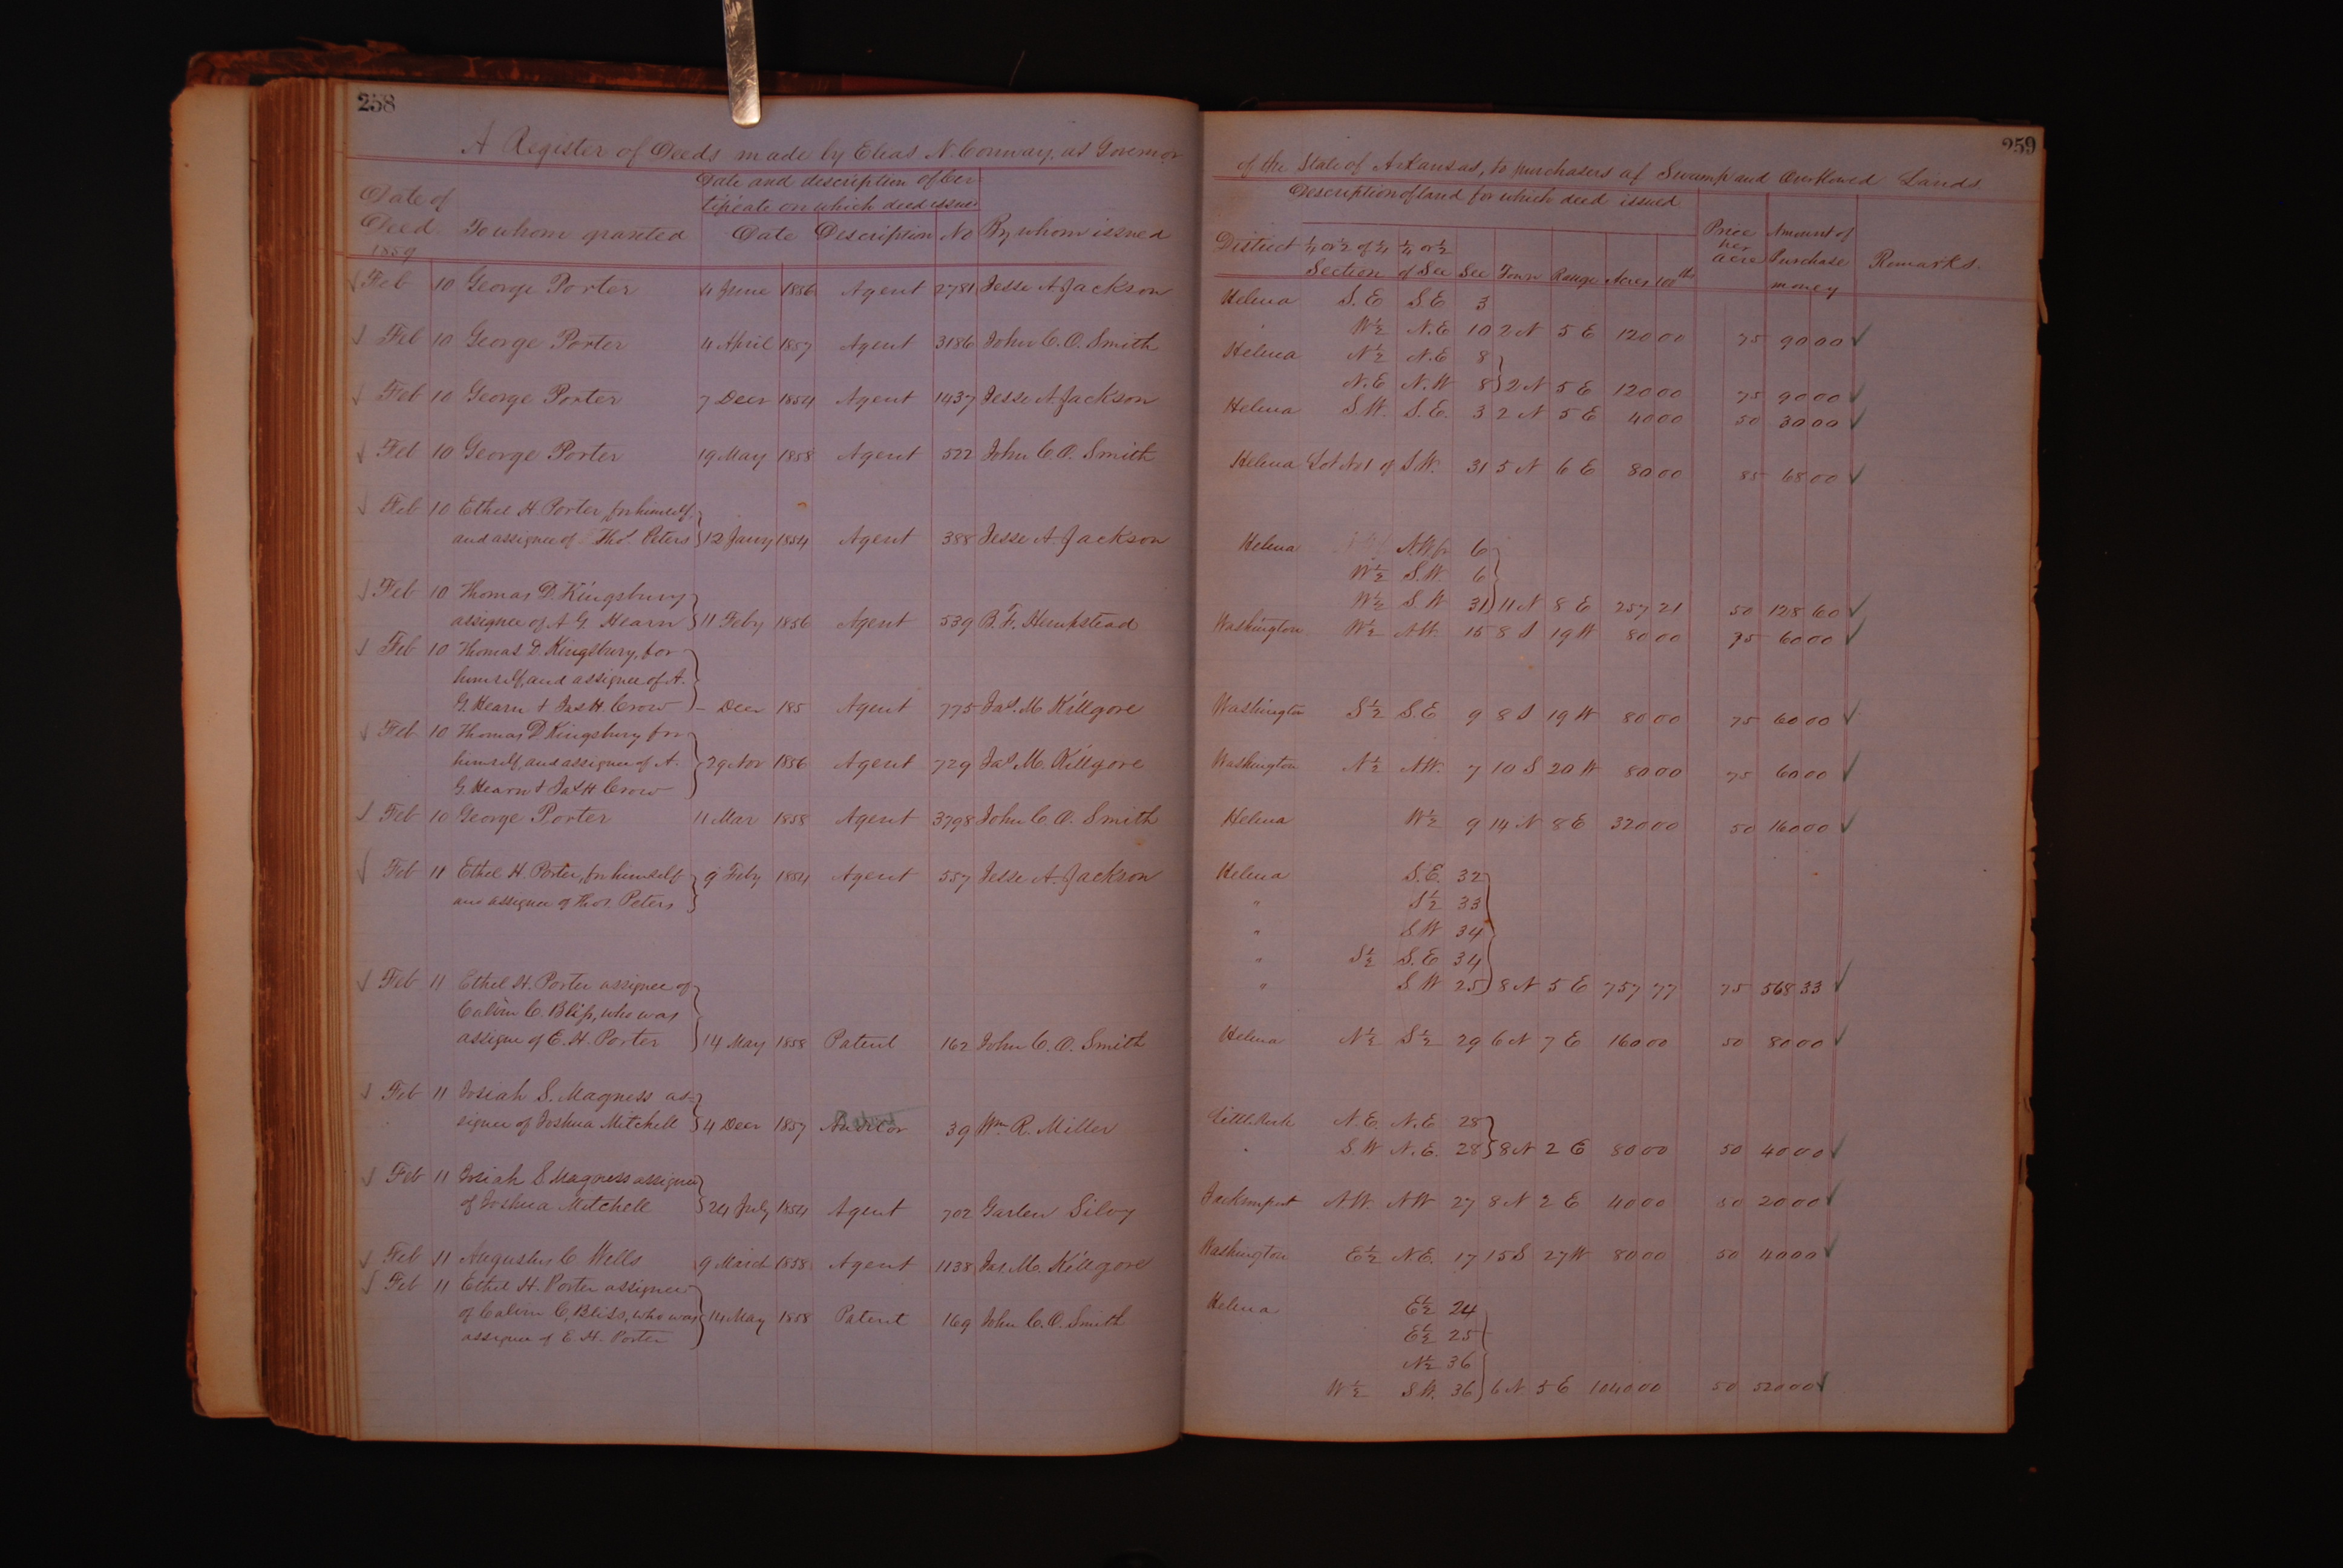 258
A Register of Deeds made by Elias N. Conway, as Governor
Date of
Deed
1859
To whom granted
Date and description of Cer
tificate on which deed issued
Date Description No By whom issued
Feb 10 George Porter 4 June 1856 Agent 2781 Jesse A. Jackson
Feb 10 George Porter 4 April 1857 Agent 3186 John C. O. Smith
Feb 10 George Porter 7 Decr 1854 Agent 1437 Jesse A. Jackson
Feb 10 George Porter 19 May 1858 Agent 522 John C. O. Smith
Feb 10 Ethel H. Porter, for himself,
and assignee of Thos. Peters 12 Jany 1854 Agent 388 Jesse A. Jackson
Feb 10 Thomas D. Kingsbury
assignee of A G. Hearn 11 Feby 1856 Agent 539 B. F. Hempstead
Feb 10 Thomas D. Kingsbury, for
himself, and assignee of A.
G. Hearn & Jas H. Crow – Decr 185 Agent 775 Jas. M. Killgore
Feb 10 Thomas D Kingsbury for
himself, and assignee of A.
G. Hearn & Jas H Crow 29 Nov 1856 Agent 729 Jas M. Killgore
Feb 10 George Porter 11 Mar 1858 Agent 3798 John C. O. Smith
Feb 11 Ethel H. Porter, for himself 9 Feby 1854 Agent 557 Jesse A. Jackson
and assignee of Thos. Peters
Feb 11 Ethel H. Porter assignee of
Calvin C. Bliss, who was
assigne of E. H. Porter 14 May 1858 Patent 162 John C. O. Smith
Feb 11 Josiah S. Magness as-
signee of Joshua Mitchell 4 Decr 1857 Auditor 39 Wm R. Miller
Feb 11 Josiah S Magness assignee
of Joshua Mitchell 24 July 1854 Agent 702 Garlen Silvy
Feb 11 Augustus C Wells 9 March 1858 Agent 1138 Jas M. Killgore
Feb 11 Ethel H. Porter assignee
of Calvin C. Bliss, who was 14 May 1858 Patent 169 John C. O. Smith
assignee of E. H. Porter
259
of the State of Arkansas, to purchasers of Swamp and Overflowed Lands.
Description of land for which deed issued
District ¼ or ½ of ¼ ¼ or ½
Section of Sec Sec Town Range Acres 100ths
Price
per
acre
Amount of
Purchase
money
Remarks.
Helena S. E S. E 3
" W½ N. E 10 2 N 5 E 120 00 75 90 00
Helena N½ N. E 8
N. E N. W 8 2 N 5 E 120 00 75 90 00
Helena S. W. S. E. 3 2 N 5 E 40 00 50 30 00
Helena Lot No 1 of S. W. 31 5 N 6 E 80 00 85 68 00
Helena N. W. fr 6
W½ S. W. 6
W½ S. W 31 11 N 8 E 257 21 50 128 60
Washington W½ N. W. 15 8 S 19 W 80 00 75 60 00
Washington S½ S. E 9 8 S 19 W 80 00 75 60 00
Washington N½ N. W. 7 10 S 20 W 80 00 75 60 00
Helena W½ 9 14 N 8 E 320 00 50 160 00
Helena S. E. 32
" S½ 33
" S. W 34
" S½ S. E 34
" S. W 25 8 N 5 E 757 77 75 568 33
Helena N½ S½ 29 6 N 7 E 160 00 50 80 00
Little Rock N. E. N. E 28
" S. W N. E. 28 8 N 2 E 80 00 50 40 00
Jacksonport N. W. N W 27 8 N 2 E 40 00 50 20 00
Washington E½ N. E. 17 15 S 27 W 80 00 50 40 00
Helena E½ 24
E½ 25
N½ 36
W½ S. W. 36 6 N 5 E 1040 00 50 520 00